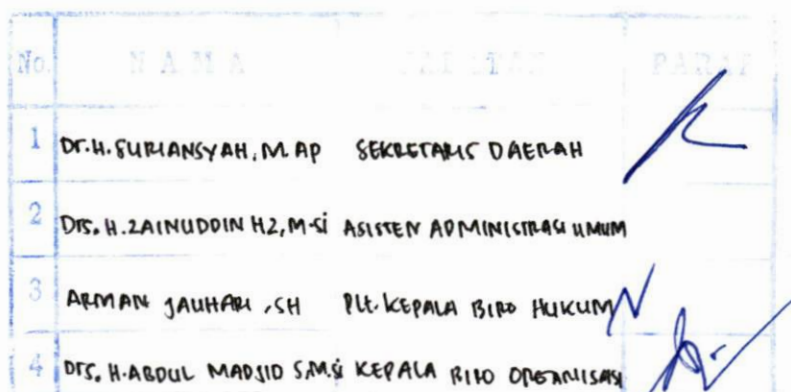 No. N A M A JABATAN PARAF
1 Dr. H. SURIANSYAH, M. AP SEKRETARIS DAERAH
2 Drs. H. ZAINUDDIN HZ, M.Si ASISTEN ADMINISTRASI UMUM
3 ARMAN JAUHARI, SH Plt. KEPALA BIRO HUKUM
4 Drs. H. ABDUL MADJID S, M.Si KEPALA BIRO ORGANISASI